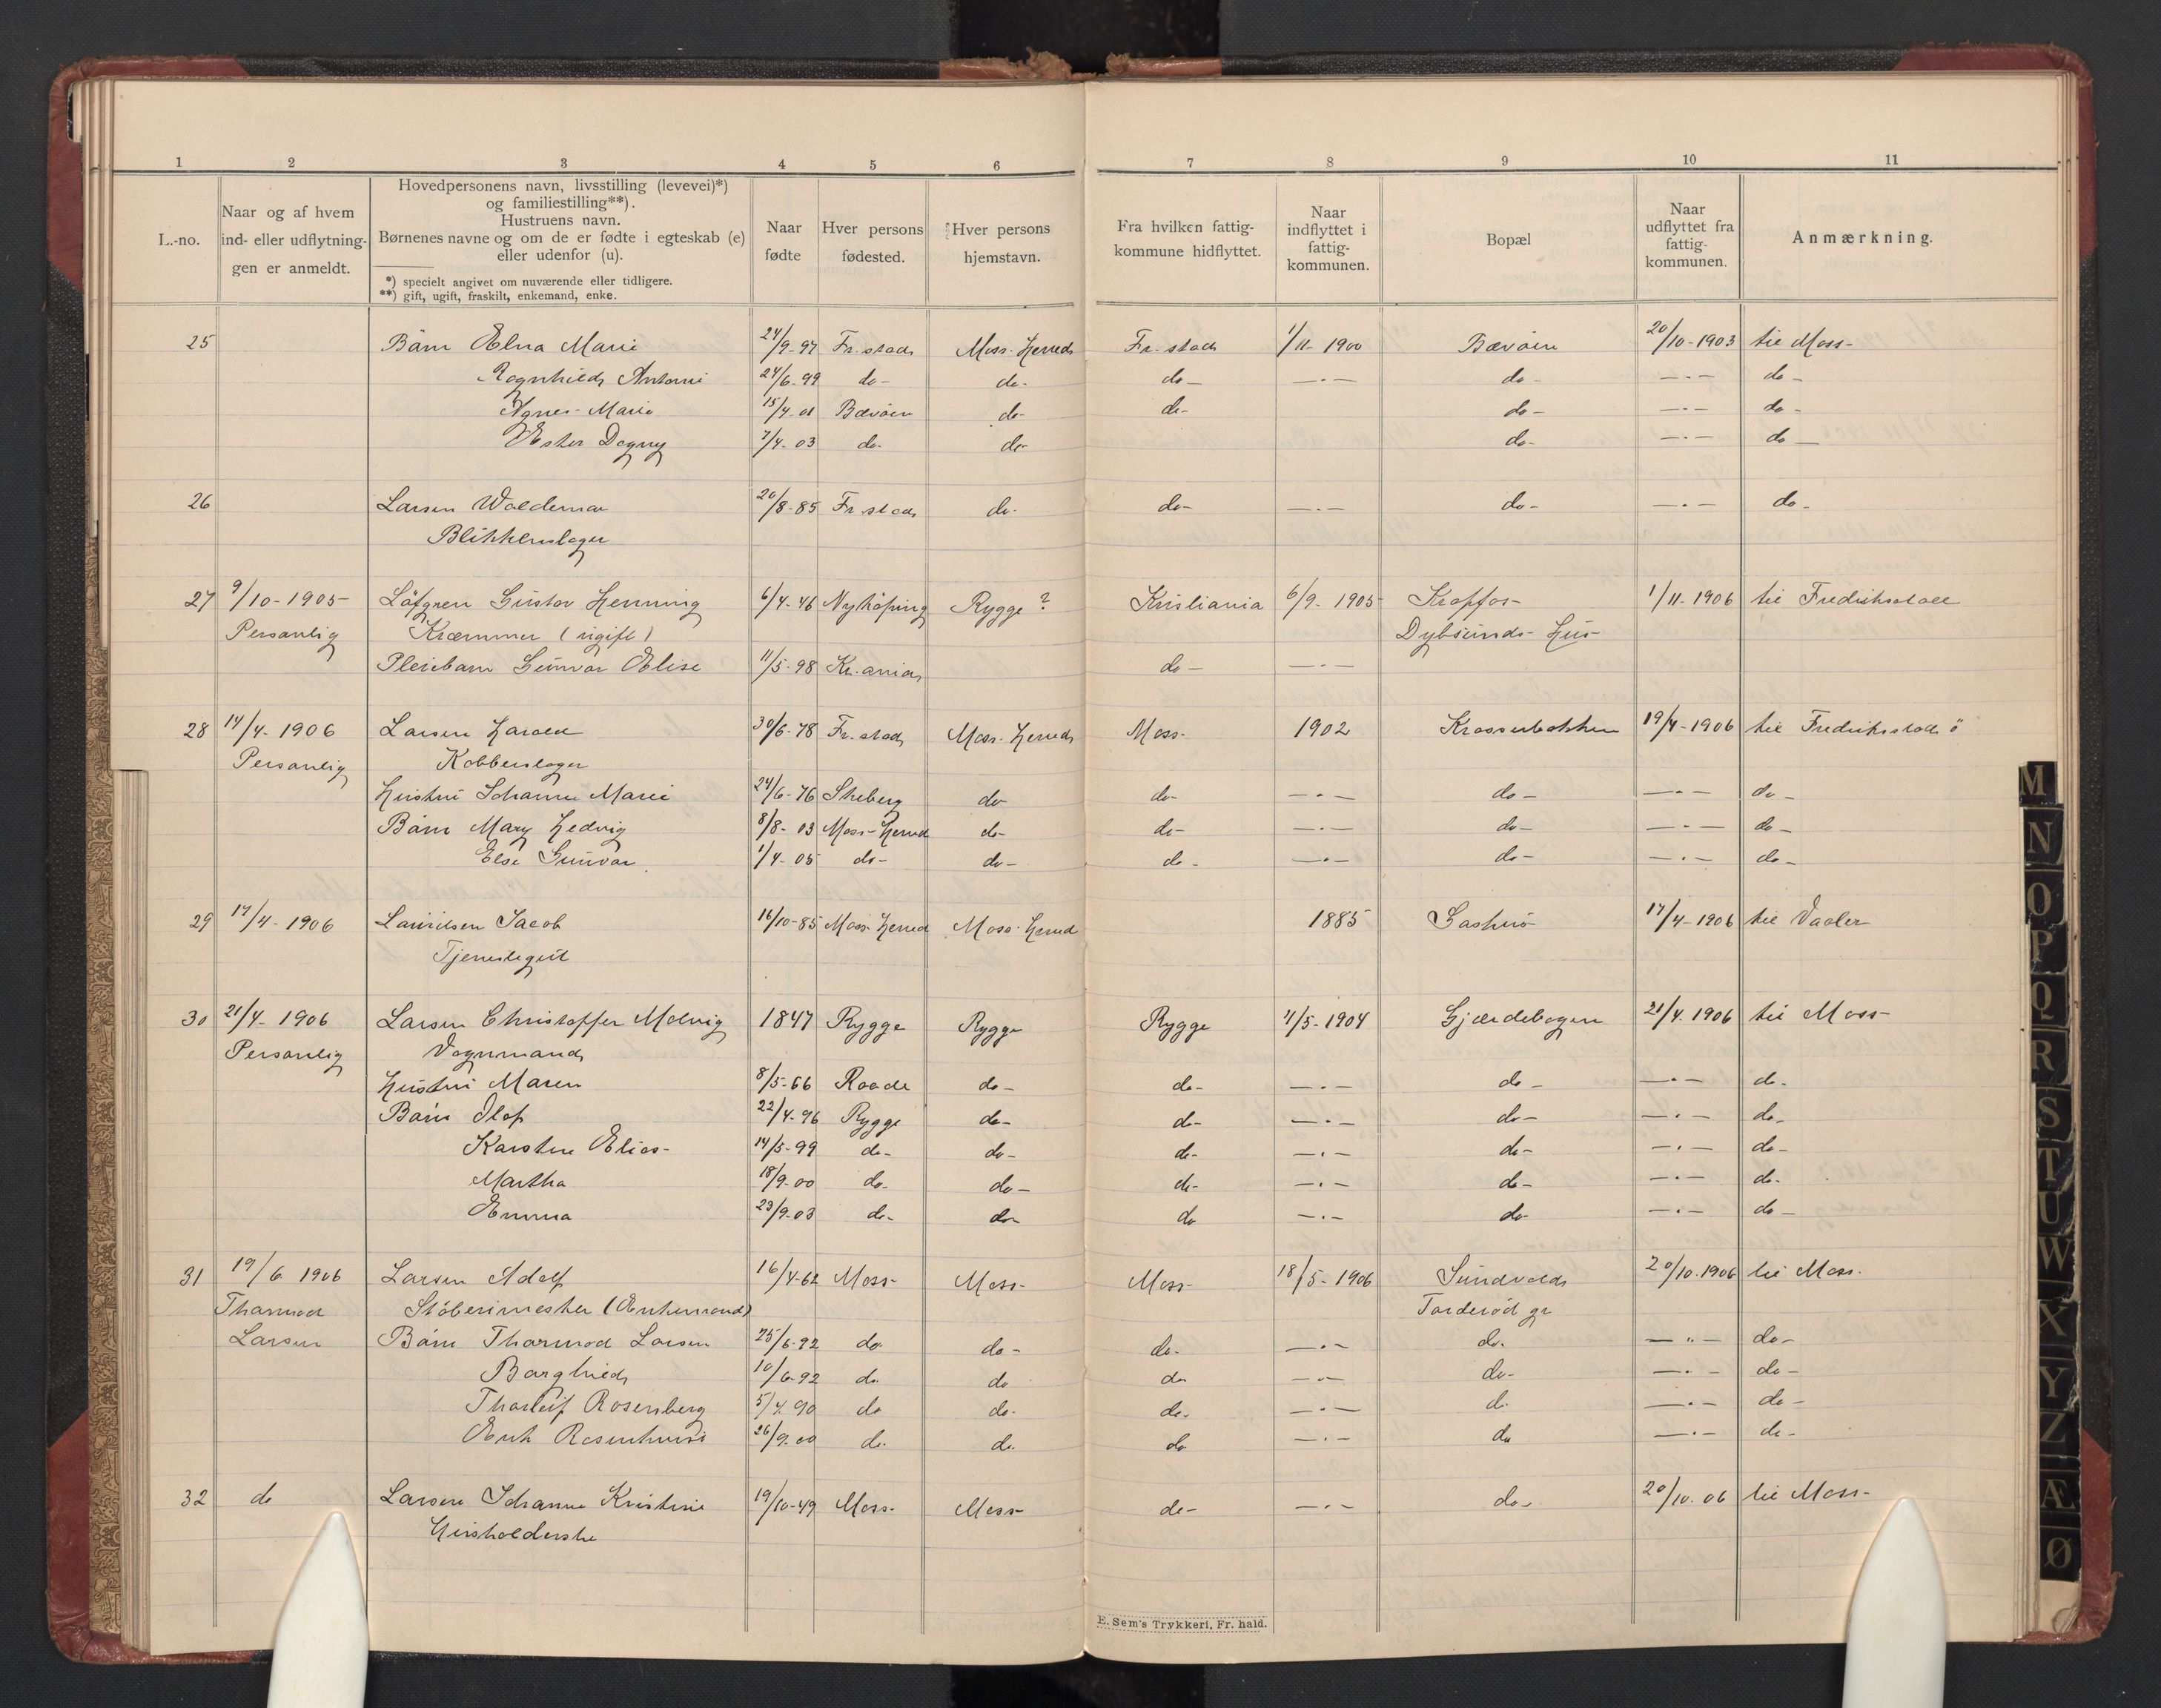 1 2 3 4 5 6 7 8 9 10 11
L.-no.
Naar og af hvem
ind- eller udflytnin-
gen er anmeldt.
Hovedpersonens navn, livsstilling (levevei)*)
og familiestilling**).
Hustruens navn.
Børnenes navne og om de er fødte i egteskab (e)
eller udenfor (u).
*) specielt angivet om nuværende eller tidligere.
**) gift, ugift, fraskilt, enkemand, enke.
Naar
fødte
Hver persons
fødested.
Hver persons
hjemstavn.
Fra hvilken fattig-
kommune hidflyttet.
Naar
indflyttet i
fattig-
kommunen.
Bopæl
Naar
udflyttet fra
fattig-
kommunen.
Anmærkning.
25 Børn Elna Marie 24/9-97 Fr.stad Moss-Herred Fr.stad 1/11-1900 Bævøen 20/10-1903 til Moss-
Ragnhild Antonie 24/6-99 do- do- do- —·— do- —·— do-
Agnes-Marie 15/4-01 Bævøen do- do- do- —·— do-
Ester Dagny 7/4-03 do- do- do- —·— do-
26 Larsen Waldemar 20/8-85 Fr.stad do- do- —·— do- —·— do-
Blikkenslager
27 9/10-1905 Löfgren Gustav Henning 6/4-46 Nyköping Rygge? Kristiania 6/9-1905 Krapfos- 1/11-1906 til Fredriksstad
Personlig Kræmmer (ugift) Dybsunds-Hus-
Pleiebarn Gunvor Elise 11/5-98 Kr.ania do- —·—
28 14/4-1906 Larsen Harald 30/6-78 Fr.stad Moss-Herred Moss- 1902 Krosserbakken 19/4-1906 til Fredriksstad
Personlig Kobberslager
Hustru Johanne Marie 24/6-76 Skeberg do- do- —·— do- —·— do-
Børn Mary Hedvig 8/8-03 Moss-Herred do- do- —·— do- —·— do-
Else Gunvor 1/4-05 do- do- do- —·— do- —·— do-
29 17/4-1906 Lauritsen Jacob 16/10-85 Moss-Herred Moss-Herred 1885 17/4-1906 til Vaaler
Tjenestegut
30 21/4-1906 Larsen Christoffer Molvig 1847 Rygge Rygge Rygge 1/5-1904 Gjærdebogen 21/4-1906 til Moss-
Personlig Vognmand
Hustru Maren 8/5-66 Raade do- do- —·— do- —·— do-
Børn Olaf 22/4-96 Rygge do- do- —·— do- —·— do-
Karsten Elias- 14/5-99 do- do- do- —·— do- —·— do-
Martha 18/9-00 do- do- do- —·— do- —·— do-
Emma 23/9-03 do- do- do —·— do- —·— do-
31 19/6 1906 Larsen Adolf 16/4-62 Moss- Moss- Moss- 18/5-1906 Sundvold 20/10-1906 til Moss-
Thormod Støberimester (Enkemand) Tarderød gr
Larsen Børn Thormod Larsen 25/6-92 do- do- do- —·— do- —·— do-
Borghild 10/6-92 do- do do —·— do- —·— do-
Thorleif Rosenberg 5/4-90 do do- do- —·— do- —·— do-
Rosenkruse 26/9-00 do- do- do —·— do —·— do-
32 do Larsen Johanne Kristine 19/10-49 Moss- Moss- do- —·— do- 20/10-06 til Moss-
Husholderske
E. Sem's Trykkeri, Fr. hald.
M
N
O
P
Q
R
S
T
U
W
X
Y
Z
Æ
Ø